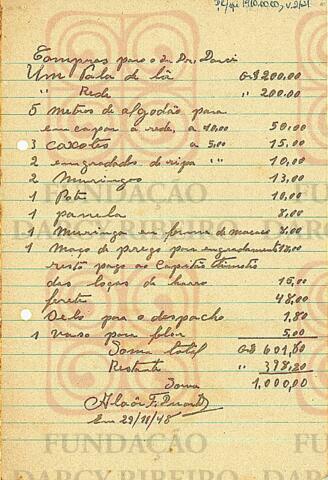 Compras para o dr. Dr. Darci
Um Pala de lã Cr$ 200,00
" Rede " 200,00
5 metros de algodão para
emcapar a rede, a 10,00 50,00
3 caxotes a 5,00 15,00
2 emgradados de ripa " " 10,00
2 Muringos 13,00
1 Pote 10,00
1 panela 8,00
1 Muringa em forma de macaco 8,00
1 Maço de prego para emgradamento 18,00
resto pago ao Capitão
das logas de barro 15,00
frete 48,00
Selo para o despacho 1,80
1 vaso para flor 5,00
Soma total Cr$ 601,80
Restante " 398,20
Soma 1,000,00
Alaôr F. Duarte
Em 29/11/48
FUNDAÇÃO
DARCY RIBEIRO
FUNDAÇÃO
DARCY RIBEIRO